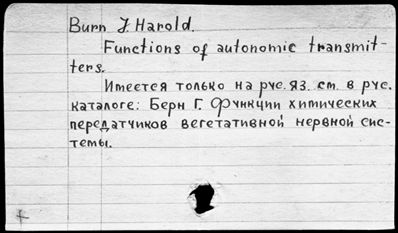 Burn J. Harold.
Functions of autonomic transmit-
ters.
Имеется только на рус. яз. см. в рус.
каталоге: Берн Г. Функции химических
передатчиков вегетативной нервной сис-
темы.